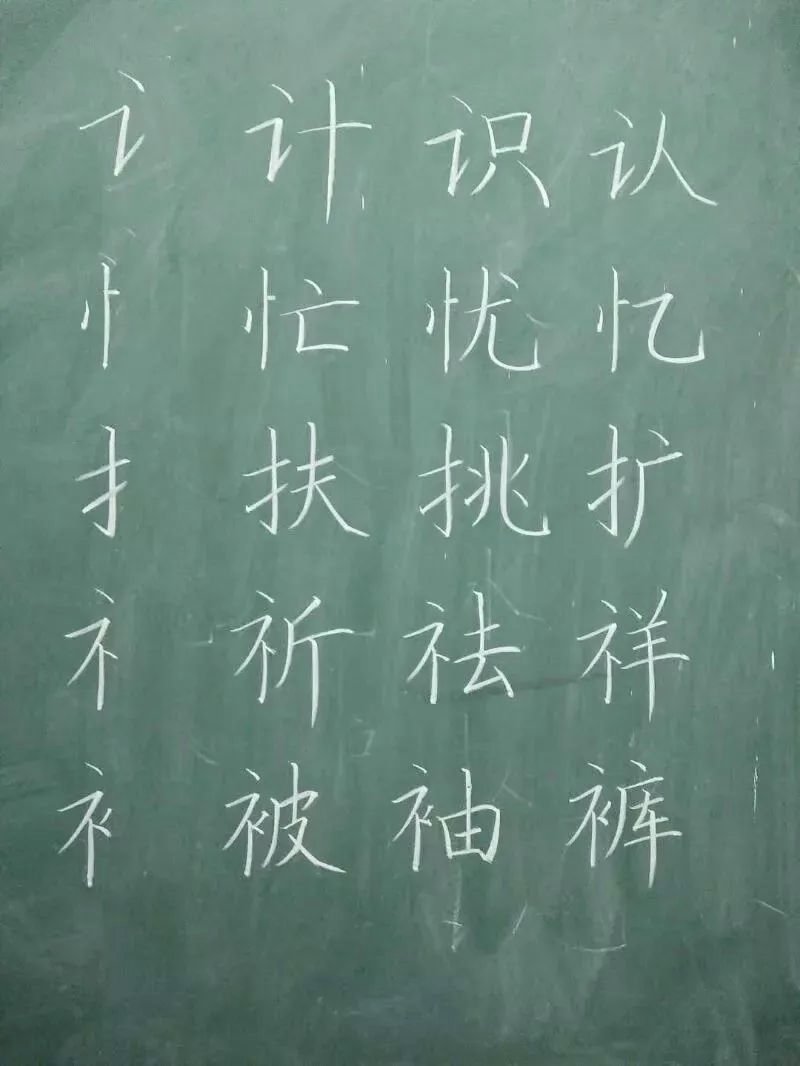 讠 计 识 认
忄 忙 忧 忆
扌 扶 挑 扩
礻 祈 祛 祥
衤 被 袖 裤